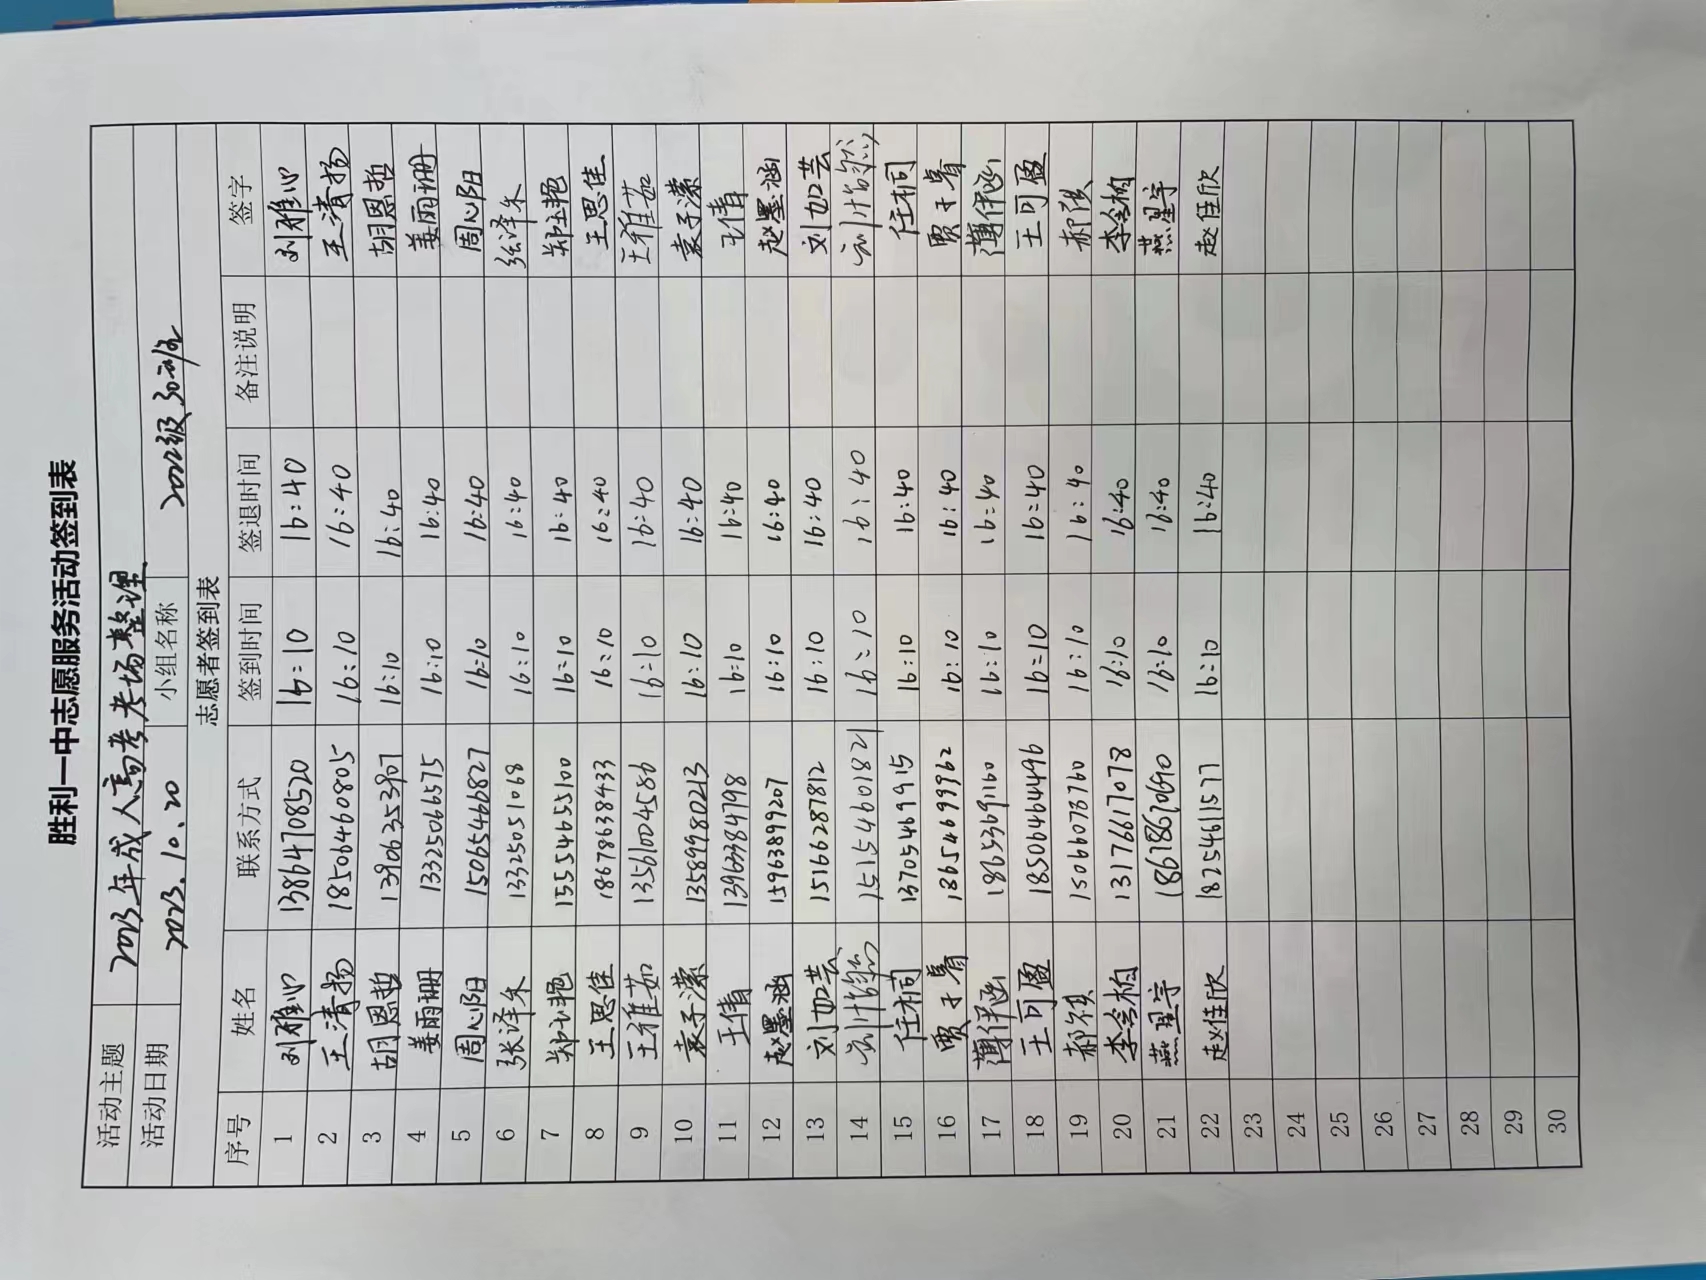 胜利一中志愿服务活动签到表
活动主题 2023年成人高考考场整理
活动日期 2023.10.20 小组名称 2022级30班
志愿者签到表
序号 姓名 联系方式 签到时间 签退时间 备注说明 签字
1 刘雅心 13864708520 16:10 16:40 刘雅心
2 王清扬 18506460805 16:10 16:40 王清扬
3 胡恩哲 139063253907 16:10 16:40 胡恩哲
4 姜雨珊 13325066575 16:10 16:40 姜雨珊
5 周心阳 15065446827 16:10 16:40 周心阳
6 张泽禾 13325051068 16:10 16:40 张泽禾
7 郑艳 15554655100 16:10 16:40 郑艳
8 王思佳 18678638433 16:10 16:40 王思佳
9 王雅茹 13561004586 16:10 16:40 王雅茹
10 袁子潆 13589980213 16:10 16:40 袁子潆
11 王倩 13963384798 16:10 16:40 王倩
12 赵墨涵 15963899207 16:10 16:40 赵墨涵
13 刘加芸 15166287812 16:10 16:40 刘加芸
14 15154601821 16:10 16:40
15 任桐 13705469915 16:10 16:40 任桐
16 贾子睿 18654699962 16:10 16:40 贾子睿
17 薄伊涵 18653691160 16:10 16:40 薄伊涵
18 王可盈 18506464496 16:10 16:40 王可盈
19 15066073760 16:10 16:40
20 李含构 13176617078 16:10 16:40 李含构
21 燕星宇 18678670690 16:10 16:40 燕星宇
22 赵佳欣 18254611577 16:10 16:40 赵佳欣
23
24
25
26
27
28
29
30